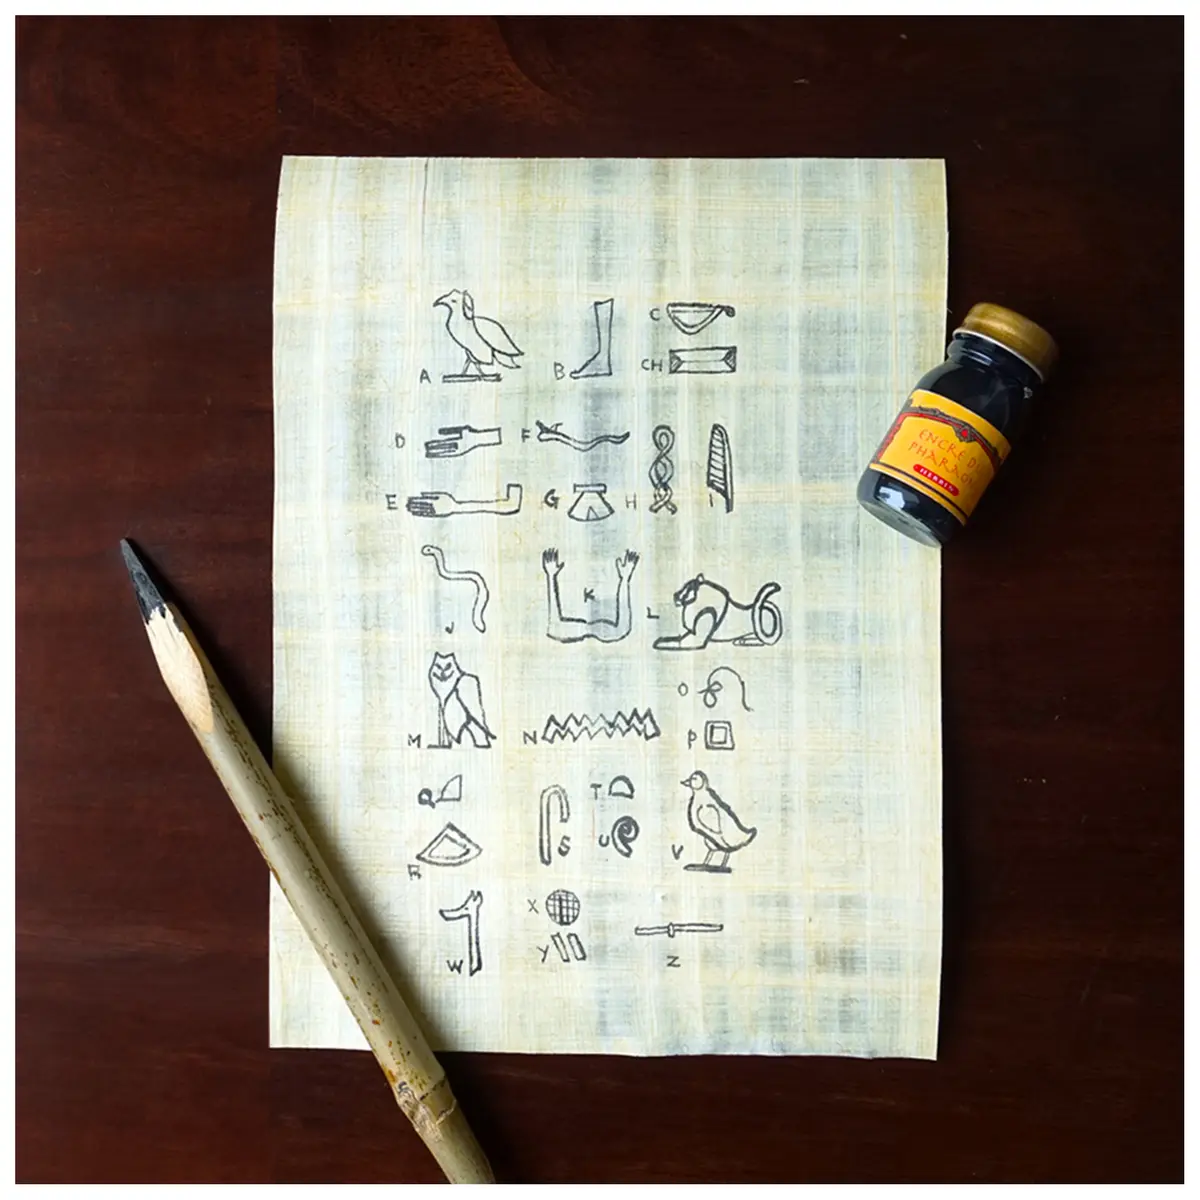 A B C
CH
D F
E G H I
J K L
M N O
P
Q T
R S U V
W X
Y Z
ENCRE D
PHARAO
HERBIN